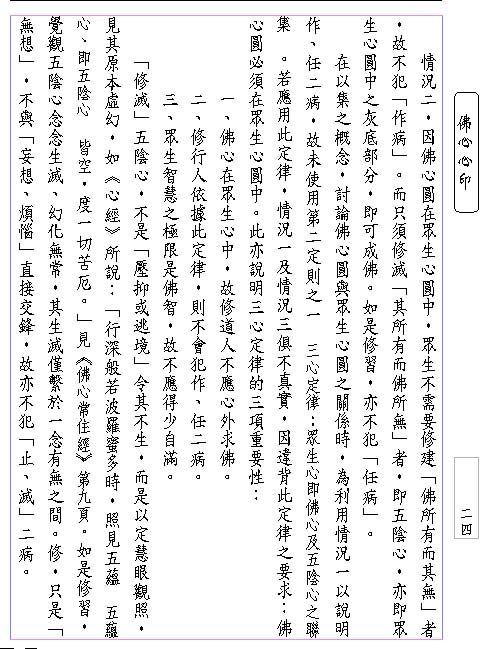 佛心心印
二四
情況二，因佛心圓在眾生心圓中，眾生不需要修建「佛所有而其無」者
，故不犯「作病」。而只須修滅「其所有而佛所無」者，即五陰心，亦即眾
生心圓中之灰底部分，即可成佛。如是修習，亦不犯「任病」。
在以集之概念，討論佛心圓與眾生心圓之關係時，為利用情況一以說明
作、任二病，故未使用第二定則之一　三心定律：眾生心即佛心及五陰心之聯
集　。若應用此定律，情況一及情況三俱不真實，因違背此定律之要求：佛
心圓必須在眾生心圓中。此亦說明三心定律的三項重要性：
一、佛心在眾生心中，故修道人不應心外求佛。
二、修行人依據此定律，則不會犯作、任二病。
三、眾生智慧之極限是佛智，故不應得少自滿。
「修滅」五陰心，不是「壓抑或逃境」令其不生，而是以定慧眼觀照，
見其原本虛幻，如《心經》所說：「行深般若波羅蜜多時，照見五蘊　五蘊
心、即五陰心　皆空，度一切苦厄。」見《佛心常住經》第九頁。如是修習，
覺觀五陰心念念生滅、幻化無常，其生滅僅繫於一念有無之間。修，只是「
無想」，不與「妄想、煩惱」直接交鋒，故亦不犯「止、滅」二病。